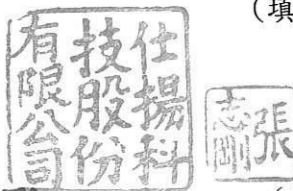 (填
仕揚科
技股份
有限公司
張